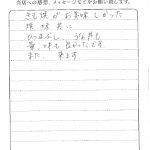 当店への感想、メッセージなどをお願い致します。
きも焼が お美味しかった
環境共に
ひつまぶし、うな丼も
量、味も 良かったです
また、来ます